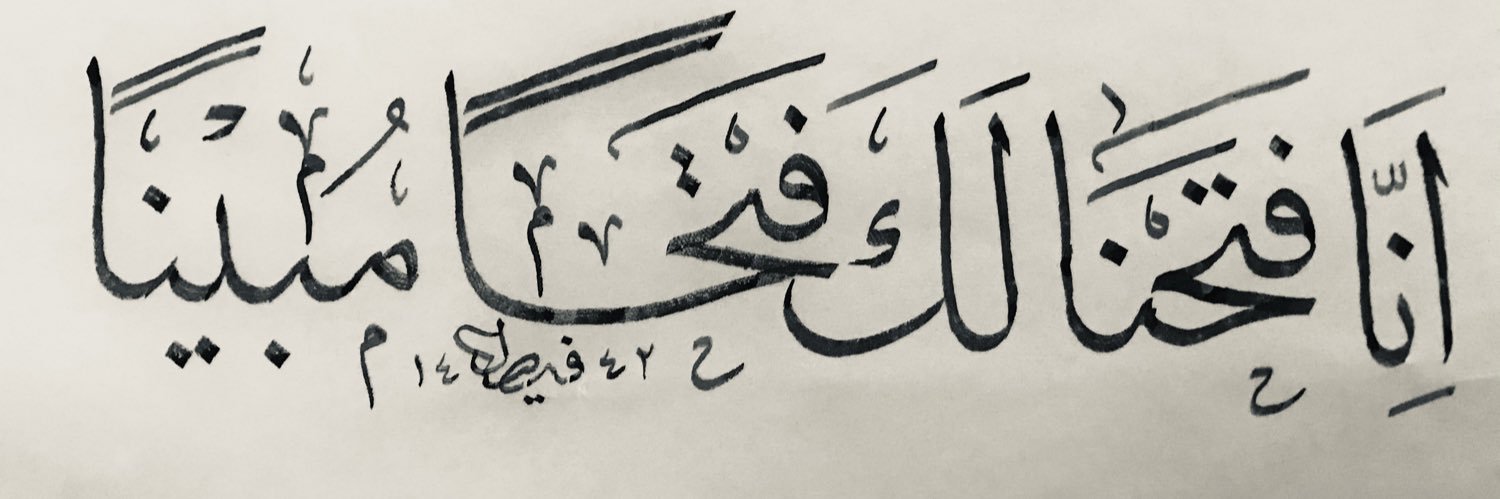 إِنَّا فَتَحْنَا لَكَ فَتْحًا مُّبِينًا
فيصل